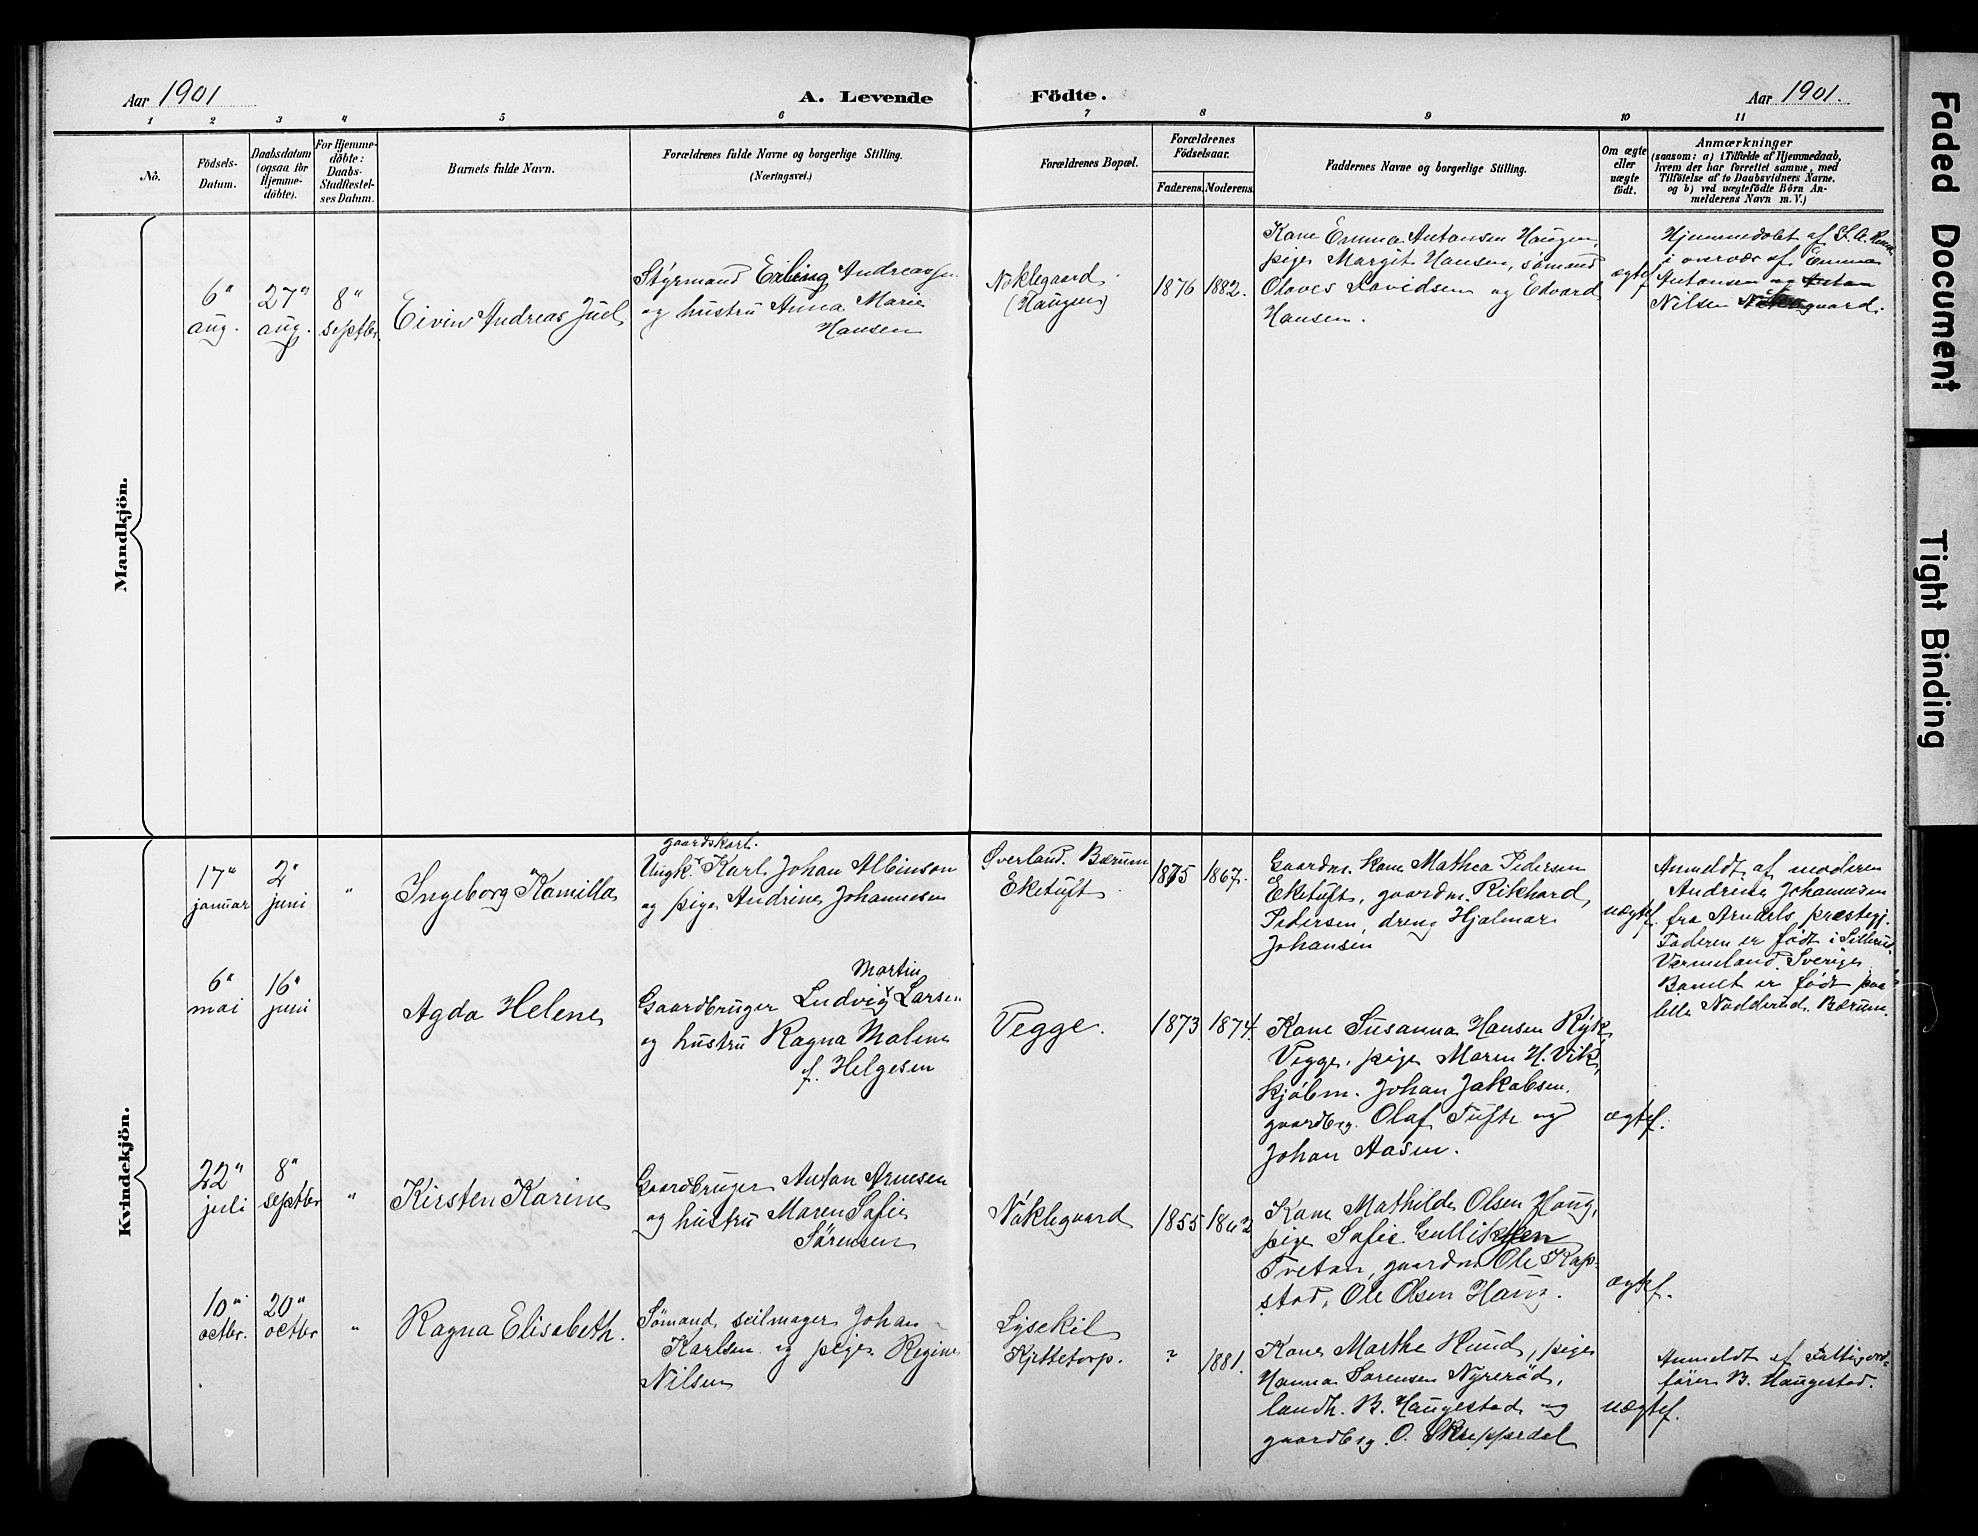 Aar 1901
A. Levende
Födte.
Aar 1901.
1 2 3 4 5 6 7 8 9 10 11
No.
Födsels-
Datum.
Daabsdatum
(ogsaa för
Hjemme-
döbte).
For Hjemme-
döbte:
Daabs-
Stadfæstel-
ses Datum.
Barnets fulde Navn.
Forældrenes fulde Navne og borgerlige Stilling.
(Næringsvei.)
Forældrenes Bopæl.
Forældrenes
Födselsaar.
Faderens. Moderens.
Faddernes Navne og borgerlige Stilling.
Om ægte
eller
uægte
födt.
Anmærkninger
(saasom: a) i Tilfælde af Hjemmedaab,
hvem der har forrettet samme, med
Tilföielse af to Daabsvidners Navne.
og b) ved uægtefödte Börn An-
melderens Navn m. V.)
Mandkjön.
6"
aug.
27"
aug.
8"
septbr.
Eivin Andreas Juel
Styrmand Erling Andreassen
og hustru Anna Marie
Hansen
Nøklegaard
(Haugen)
1876
1882.
Kone Emma Antonsen Haugen,
pige Margit Hansen, sømand
Olaves Davidsen og Edvard
Hansen.
ægtef
Hjemmedøbt af L. A.
i overvær af Emma
Antonsen og Anton
Nilsen Nøklegaard.
Kvindekjön.
17"
januar
2"
juni
"
Ingeborg Kamilla
gaardskarl.
Ungk. Karl Johan Albinson
og pige Andrine Johannesen
Øverland. Bærum
Eketuft
1875
1867.
Gaardm. kone Mathea Pedersen
Eketuft, gaardm. Rikhard
Pedersen, dreng Hjalmar
Johansen
uægtef.
Anmeldt af moderen
Andrine Johannesen
fra Arndels præstegj.
Faderen er født i Sillerud
Værmeland. Sverige.
Barnet er født paa
lille Nadderud. Bærum.
6"
mai
16"
juni
Agda Helene
Martin
Gaardbruger Ludvig Larsen
og hustru Ragna Malene
f. Helgesen
Vegge.
1873
1874.
Kone Susanna Hansen Røk
Vegge, pige Maren H. Vik,
kjøbm. Johan Jakobsen.
gaardbrg. Olaf Tufte og
Johan Aasen.
ægtef.
22"
juli
8"
septbr
"
Kirsten Karine
Gaardbruger Anton Arnesen
og hustru Maren Sofie
Sørensen
Nøklegaard
1855
1862
Kone Mathilde Olsen Haug,
pige Sofie Gulliksen
Tvetan, gaardm Ole Kap-
stad, Ole Olsen Haug.
ægtef.
10"
octbr.
20"
octbr
"
Ragna Elisabeth.
Sømand, seilmager Johan
Karlsen og pige Regine
Nilsen
Lysekil
Kjettetorp.
?
1881.
Kone Marthe Hund, pige
Hanna Sørensen Nyrerød,
landh. B. Haugestad og
gaardbrg. O. Skrepperdal
uægtef.
Anmeldt af Fattigord-
fører B. Haugestad.
Faded Document
Tight Binding